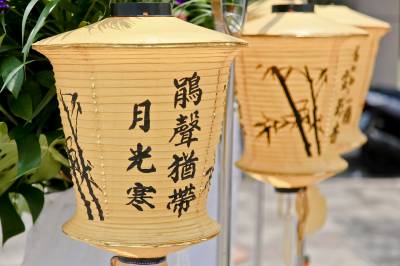 鵑聲猶帶
月光寒